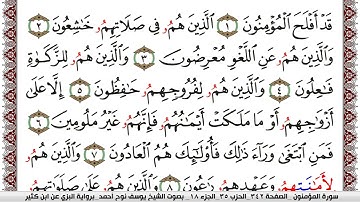 قَدْ أَفْلَحَ ٱلْمُؤْمِنُونَ ١ ٱلَّذِينَ هُمُۥ فِى صَلَاتِهِمُۥ خَٰشِعُونَ ٢
وَٱلَّذِينَ هُمُۥ عَنِ ٱللَّغْوِ مُعْرِضُونَ ٣ وَٱلَّذِينَ هُمُۥ لِلزَّكَوٰةِ
فَٰعِلُونَ ٤ وَٱلَّذِينَ هُمُۥ لِفُرُوجِهِمُۥ حَٰفِظُونَ ٥ إِلَّا عَلَىٰ
أَزْوَٰجِهِمُۥ أَوْ مَا مَلَكَتْ أَيْمَٰنُهُمُۥ فَإِنَّهُمُۥ غَيْرُ مَلُومِينَ ٦
فَمَنِ ٱبْتَغَىٰ وَرَآءَ ذَٰلِكَ فَأُوْلَٰٓئِكَ هُمُ ٱلْعَادُونَ ٧ وَٱلَّذِينَ هُمُۥ
لِأَمَٰنَتِهِمُۥ وَعَهْدِهِمُۥ رَٰعُونَ ٨ وَٱلَّذِينَ هُمُۥ عَلَىٰ صَلَوَٰتِهِمُۥ
سورة المؤمنون _ الصفحة ٣٤٢ _ الحزب ٣٥ _ الجزء ١٨ _ بصوت الشيخ يوسف نوح أحمد _ برواية البزي عن ابن كثير